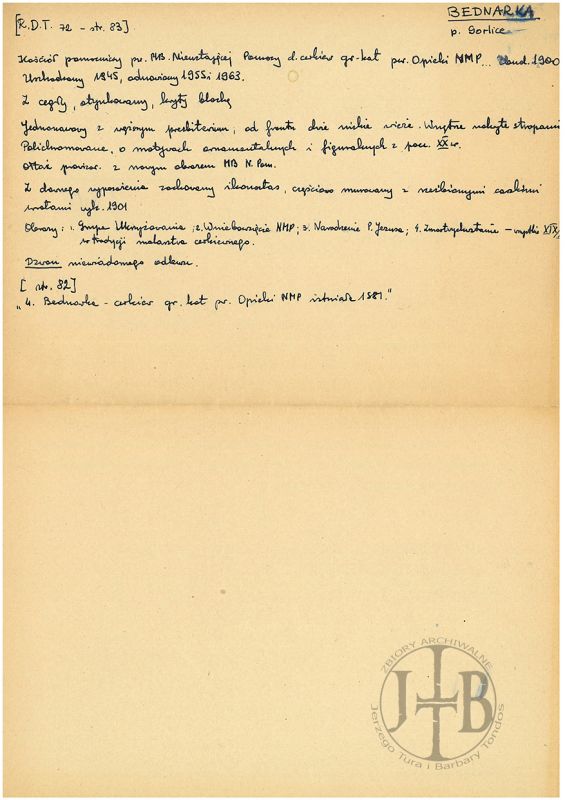 [R.D.T. 72 - str. 83]
BEDNARKA
p. Gorlice
Kościół pomocniczy pw. MB. Nieustającej Pomocy d. cerkiew gr.-kat pw. Opieki NMP... zbud. 1900
Uszkodzony 1945, odnowiony 1955 i 1963.
Z cegły, otynkowany, kryty blachą
Jednonawowy z węższym prezbiterium; od frontu dwie niskie wieże. Wnętrze nakryte stropami
Polichromowane, o motywach ornamentalnych i figuralnych z pocz. XX w.
Ołtarz prowizor. z nowym obrazem MB N. Pom.
Z dawnego wyposażenia zachowany ikonostas, częściowo murowany z rzeźbionymi carskimi
wrotami wyk. 1901
Obrazy: 1. Grupa Ukrzyżowania; 2. Wniebowzięcie NMP; 3. Narodzenie P. Jezusa; 4. Zmartwychwstanie - wszystkie XIX
w tradycji malarstwa cerkiewnego.
Dzwon niewiadomego odlewu.
[ str. 82]
"4. Bednarka - cerkiew gr. kat pw. Opieki NMP istniała 1581."
ZBIORY ARCHIWALNE
JTBT
Jerzego Tura i Barbary Tondos